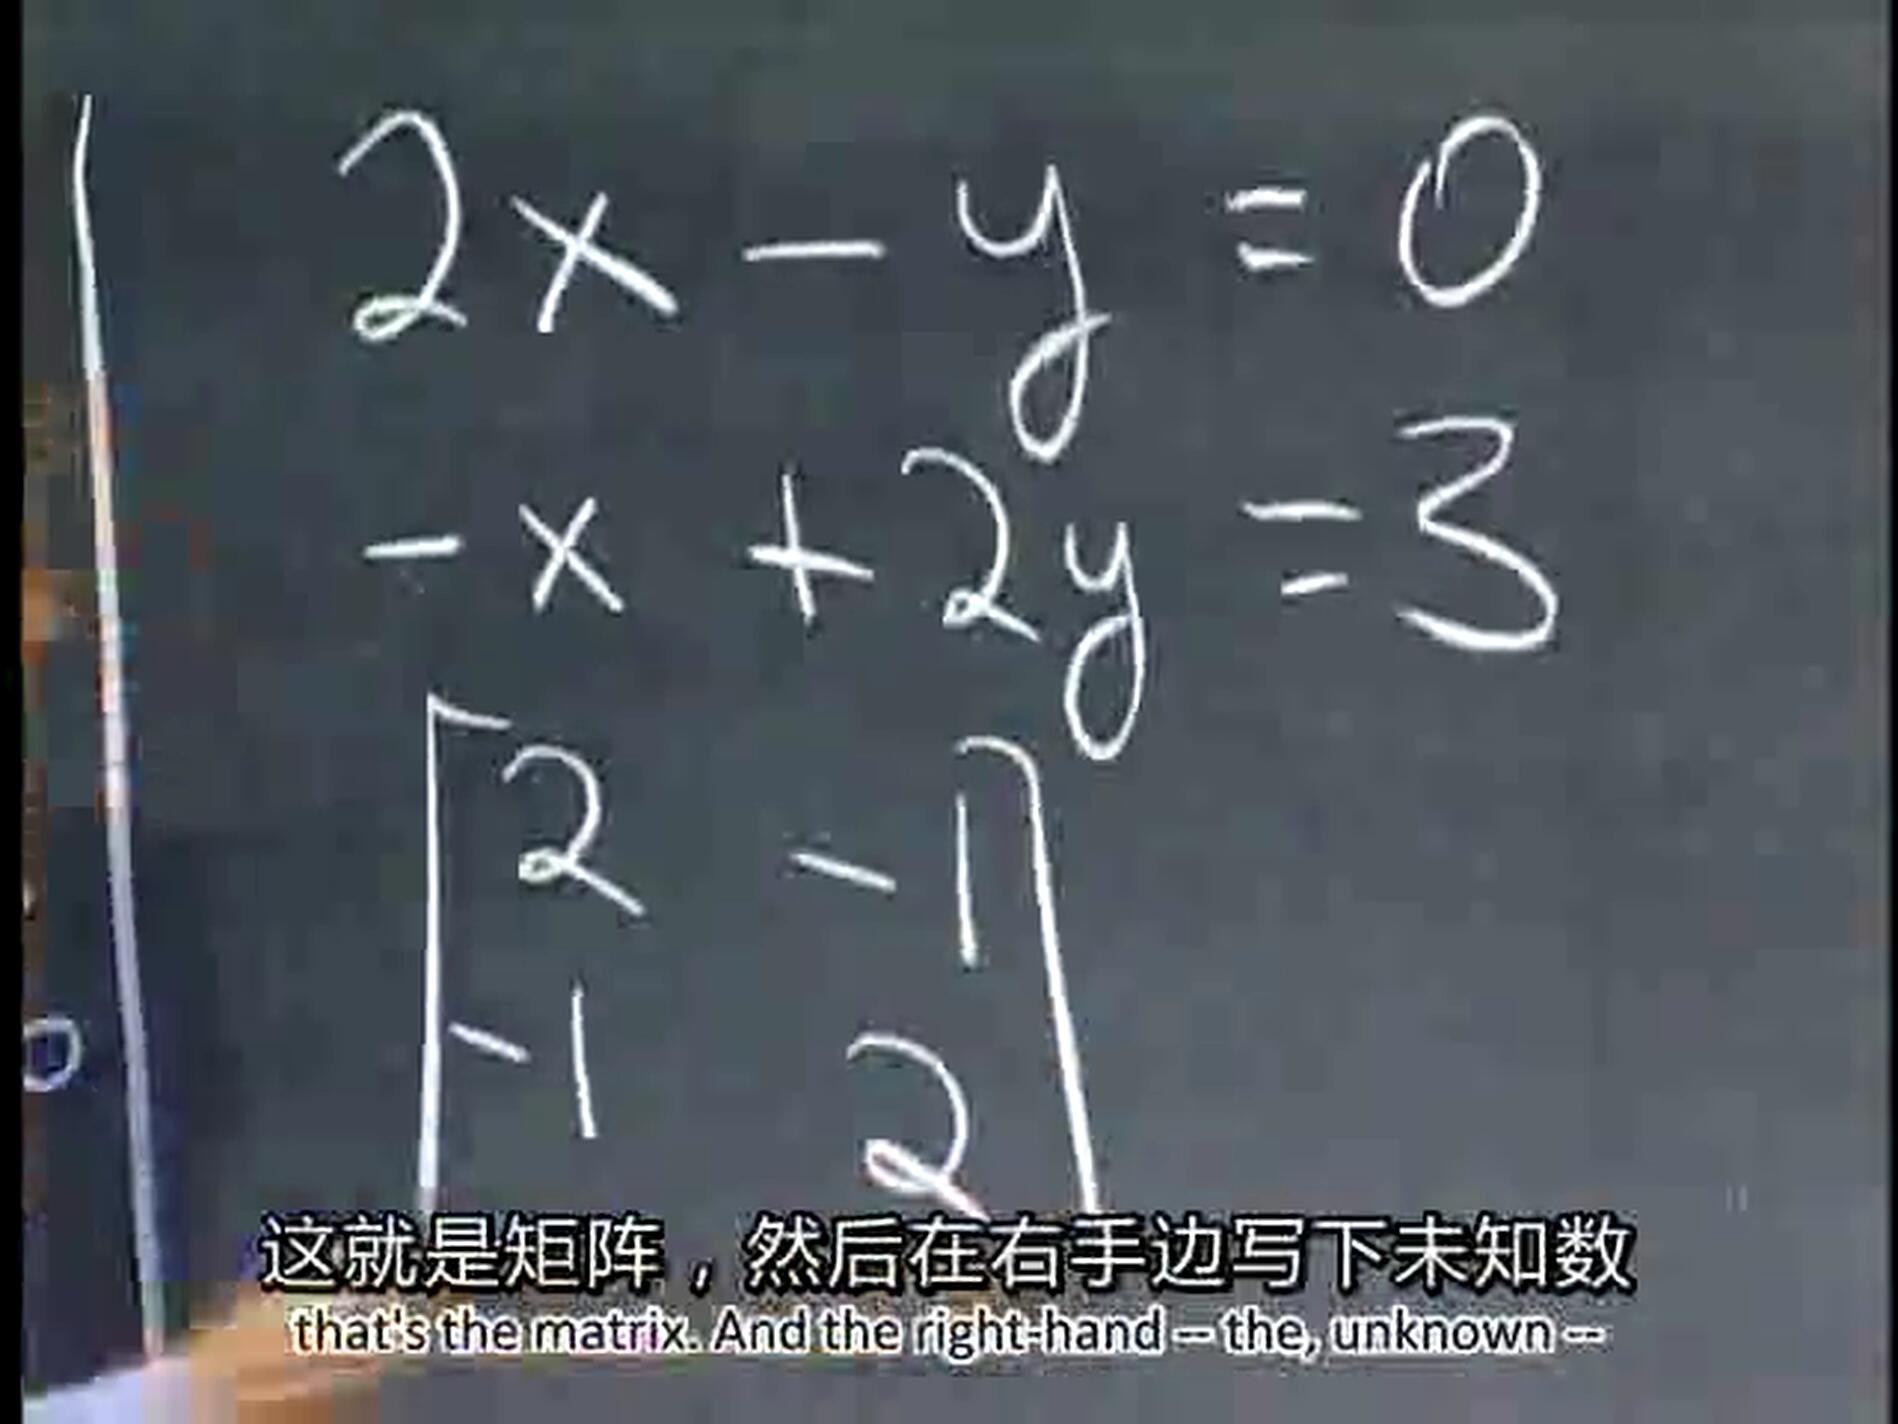 2x - y = 0
-x + 2y = 3
2 -1
-1 2
这就是矩阵，然后在右手边写下未知数
that's the matrix. And the right-hand -- the, unknown --